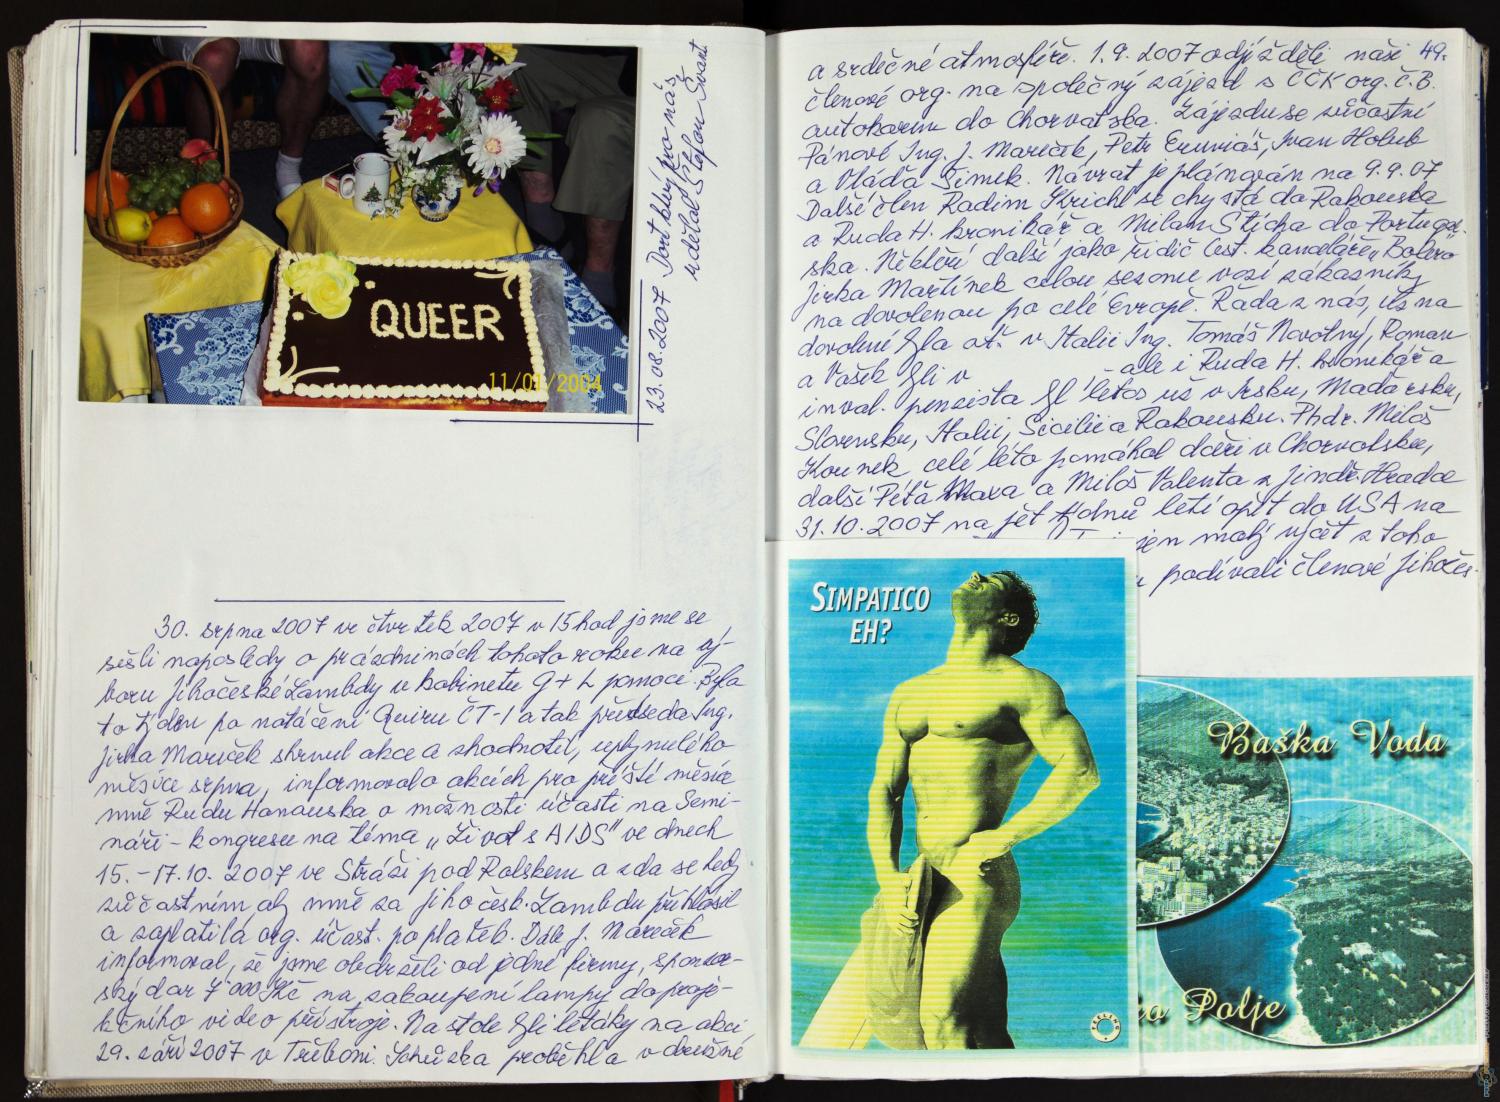 QUEER
11/01/2004
23.08.2007 Dort který pro nás
udělal Štefan Švarc
30. srpna 2007 ve čtvrtek 2007 v 15 hod jsme se
sešli naposledy o prázdninách tohoto roku na vý-
boru Jihočeské Lambdy v kabinetu G+L pomoci. Byla
to týden po natáčení Queru ČT-1 a tak předseda Ing.
Jirka Mareček shrnul akce a zhodnotil, uplynulého
měsíce srpna, informoval o akcích pro příští měsíc
mně Rudu Hanouska o možnosti účasti na Semi-
náři - kongresu na téma „Život s AIDS" ve dnech
15.-17.10. 2007 ve Stráži pod Ralskem a zda se tedy
zúčastním, aby mně za jihočesk. Lambdu přihlásil
a zaplatila org. účast. poplatek. Dále J. Mareček
informoval, že jsme obdrželi od jedné firmy, sponzor-
ský dar 7 000 Kč na zakoupení lampy do proje-
kčního video přístroje. Na stole byli letáky na akci
29. září 2007 v Třeboni. Schůzka proběhla v družné
49.
a srdečné atmosféře. 1.9. 2007 odjížděli naši
členové org. na společný zájezd s ČČK org. Č.B.
autokarem do Chorvatska. Zájezdu se zúčastní
Pánové Ing. J. Mareček, Petr Ivan Holub
a Vláďa Šimek. Návrat je plánován na 9.9.07
Další člen Radim se chystá do Rakouska
a Ruda H. kronikář a Milan Sticha do Portugal-
ska. Někteří další jako řidič cest. kanceláře „Bolero"
Jirka Martínek celou sezonu vozí zákazníky
na dovolenou po celé Evropě. Řada z nás, už na
dovolené byla ať v Italii Ing. Tomáš Novotný, Roman
a Vašek byli v ale i Ruda H. kronikář a
inval. penzista byl letos už v Irsku, Maďarsku,
Slovensku, Italii, Sicilii a Rakousku. Phdr. Miloš
Kounek celé léto pomáhal dceři v Chorvatsku,
další Péťa Maxa a Miloš Valenta z Jindř. Hradce
31.10.2007 na pět týdnů letí opět do USA na
jen malý výčet z toho
podívali členové Jihočes-
SIMPATICO
EH?
FEELING
Baška Voda
Polje